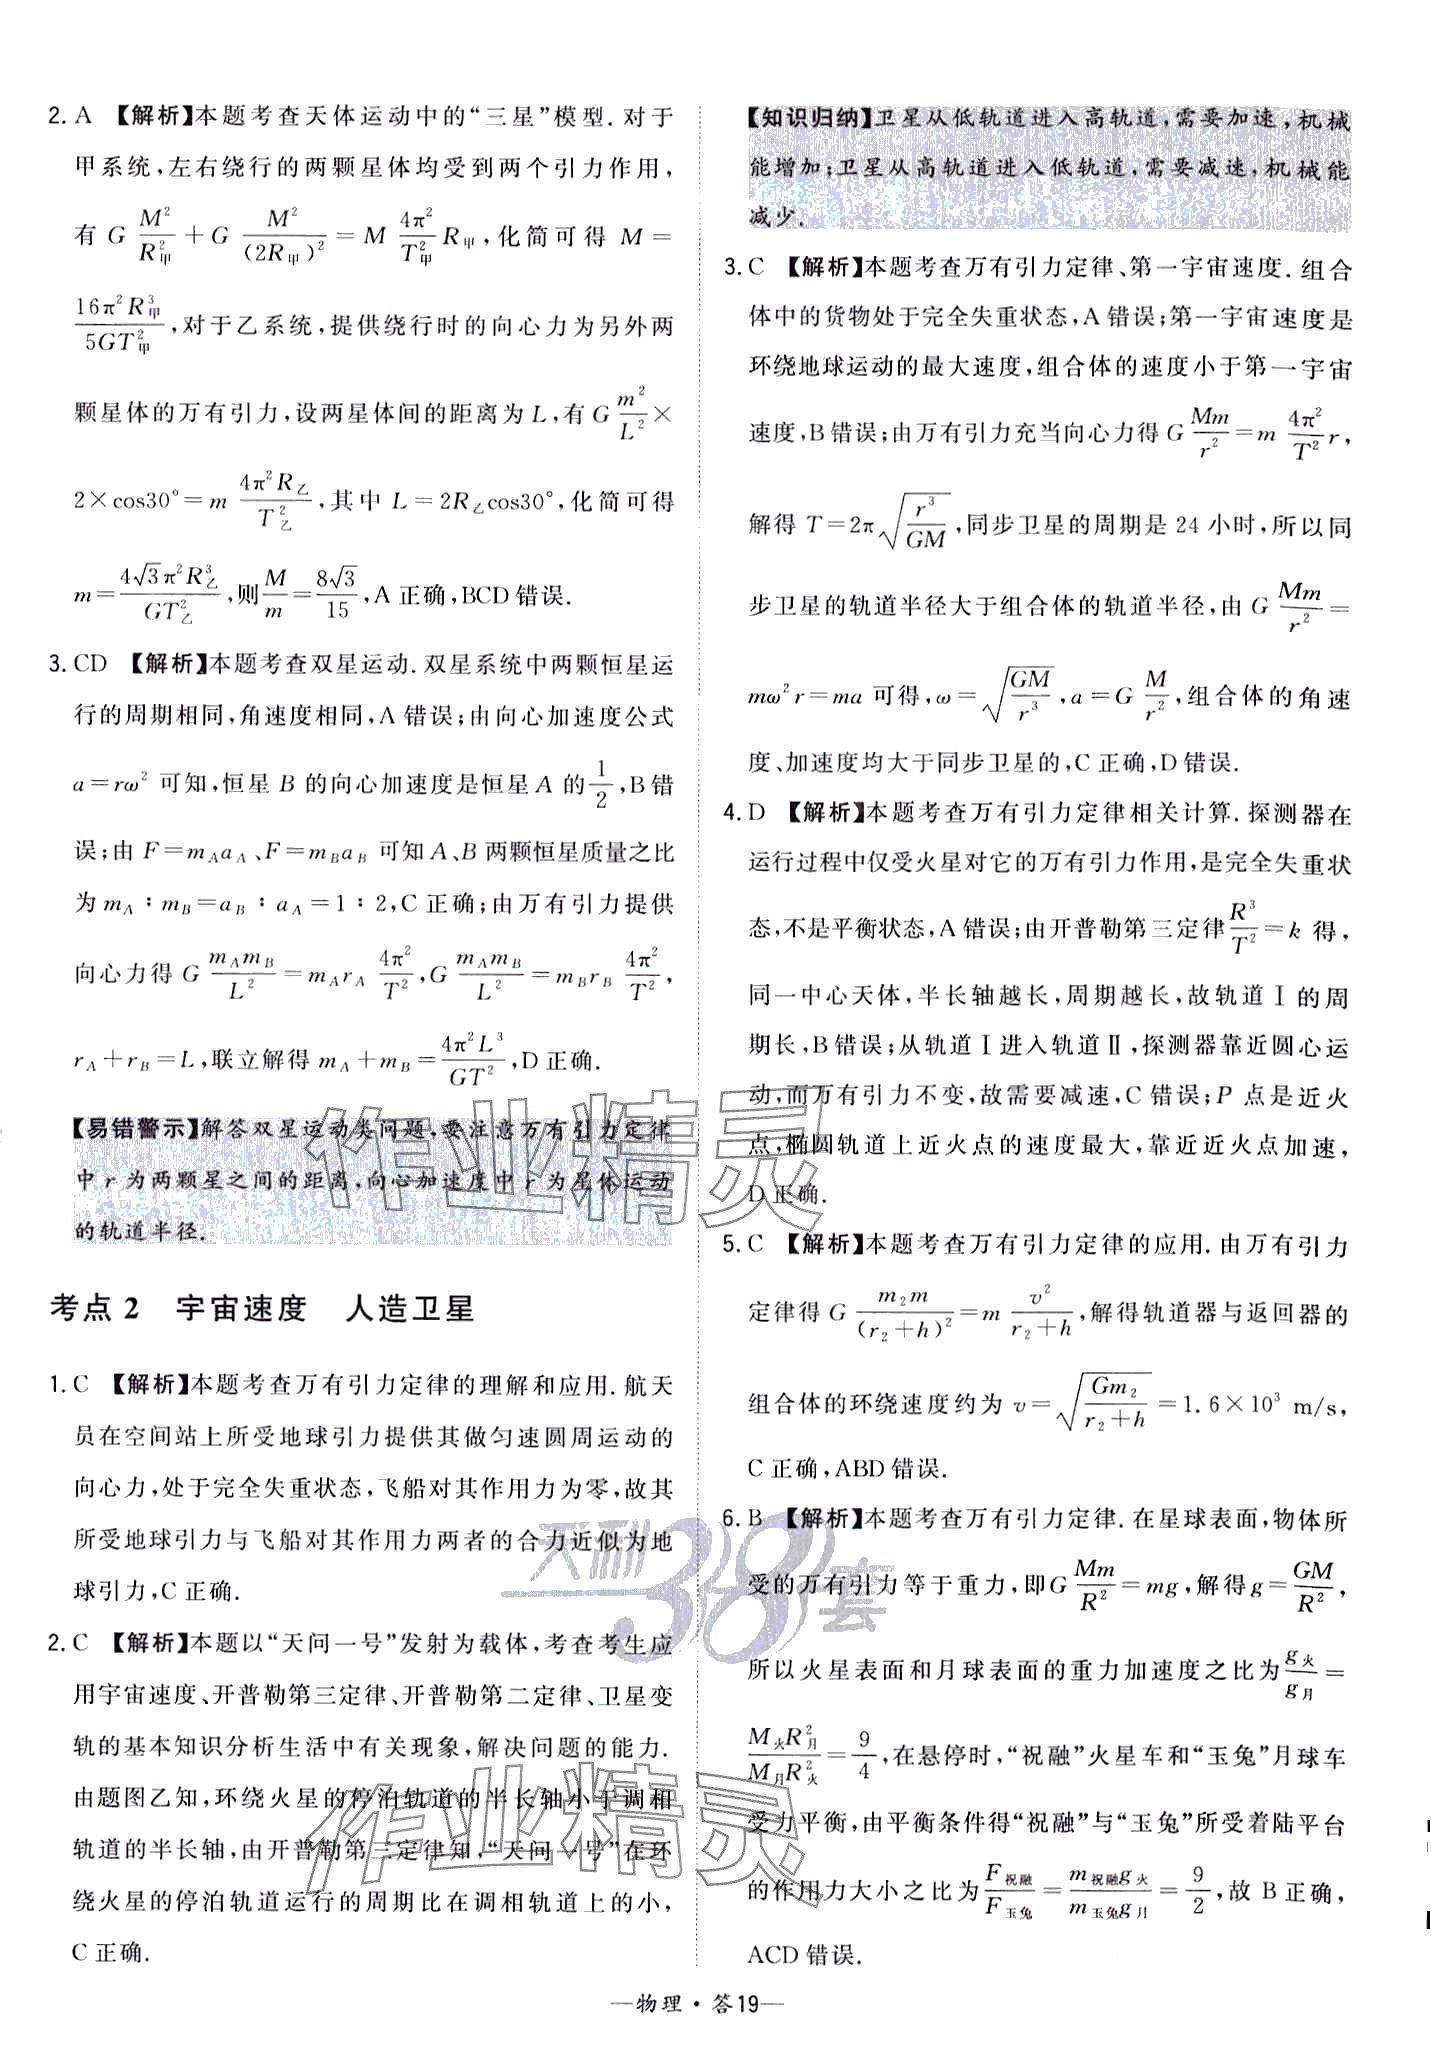 2. A 【解析】本题考查天体运动中的“三星”模型. 对于
甲系统,左右绕行的两颗星体均受到两个引力作用,
有 G M²/R甲² + G M²/(2R甲)² = M 4π²/T甲² R甲,化简可得 M =
16π²R甲³/5GT甲²,对于乙系统,提供绕行时的向心力为另外两
颗星体的万有引力,设两星体间的距离为 L,有 G m²/L² ×
2×cos30°=m 4π²R乙/T乙²,其中 L=2R乙cos30°,化简可得
m=4√3π²R乙³/GT乙²,则M/m=8√3/15,A 正确,BCD 错误.
3. CD 【解析】本题考查双星运动. 双星系统中两颗恒星运
行的周期相同,角速度相同,A 错误;由向心加速度公式
a=rω² 可知,恒星 B 的向心加速度是恒星 A 的1/2,B 错
误;由 F=mAaA、F=mBaB 可知 A、B 两颗恒星质量之比
为 mA∶mB=aB∶aA=1∶2,C 正确;由万有引力提供
向心力得 G mAmB/L² = mArA 4π²/T²,G mAmB/L² = mBrB 4π²/T²,
rA+rB=L,联立解得 mA+mB=4π²L³/GT²,D 正确.
【易错警示】解答双星运动类问题,要注意万有引力定律
中 r 为两颗星之间的距离,向心加速度中 r 为星体运动
的轨道半径.
考点 2 宇宙速度 人造卫星
1. C 【解析】本题考查万有引力定律的理解和应用. 航天
员在空间站上所受地球引力提供其做匀速圆周运动的
向心力,处于完全失重状态,飞船对其作用力为零,故其
所受地球引力与飞船对其作用力两者的合力近似为地
球引力,C 正确.
2. C 【解析】本题以“天问一号”发射为载体,考查考生应
用宇宙速度、开普勒第三定律、开普勒第二定律、卫星变
轨的基本知识分析生活中有关现象,解决问题的能力.
由题图乙知,环绕火星的停泊轨道的半长轴小于调相
轨道的半长轴,由开普勒第三定律知,“天问一号”在环
绕火星的停泊轨道运行的周期比在调相轨道上的小,
C 正确.
【知识归纳】卫星从低轨道进入高轨道,需要加速,机械
能增加;卫星从高轨道进入低轨道,需要减速,机械能
减少.
3. C 【解析】本题考查万有引力定律、第一宇宙速度. 组合
体中的货物处于完全失重状态,A 错误;第一宇宙速度是
环绕地球运动的最大速度,组合体的速度小于第一宇宙
速度,B 错误;由万有引力充当向心力得 G Mm/r² = m 4π²/T² r,
解得 T=2π√(r³/GM),同步卫星的周期是 24 小时,所以同
步卫星的轨道半径大于组合体的轨道半径,由 G Mm/r² =
mω²r=ma 可得,ω=√(GM/r³),a=G M/r²,组合体的角速
度、加速度均大于同步卫星的,C 正确,D 错误.
4. D 【解析】本题考查万有引力定律相关计算. 探测器在
运行过程中仅受火星对它的万有引力作用,是完全失重状
态,不是平衡状态,A 错误;由开普勒第三定律R³/T²=k 得,
同一中心天体,半长轴越长,周期越长,故轨道Ⅰ的周
期长,B 错误;从轨道Ⅰ进入轨道Ⅱ,探测器靠近圆心运
动,而万有引力不变,故需要减速,C 错误;P 点是近火
点,椭圆轨道上近火点的速度最大,靠近近火点加速,
D 正确.
5. C 【解析】本题考查万有引力定律的应用. 由万有引力
定律得 G m₂m/(r₂+h)² = m v²/(r₂+h),解得轨道器与返回器的
组合体的环绕速度约为 v=√(Gm₂/(r₂+h))=1.6×10³ m/s,
C 正确,ABD 错误.
6. B 【解析】本题考查万有引力定律. 在星球表面,物体所
受的万有引力等于重力,即G Mm/R²=mg,解得g=GM/R²,
所以火星表面和月球表面的重力加速度之比为g火/g月=
M火R月²/M月R火²=9/4,在悬停时,“祝融”火星车和“玉兔”月球车
受力平衡,由平衡条件得“祝融”与“玉兔”所受着陆平台
的作用力大小之比为F祝融/F玉兔=m祝融g火/m玉兔g月=9/2,故 B 正确,
ACD 错误.
作业精灵
天利38套
作业精灵
—物理·答19—